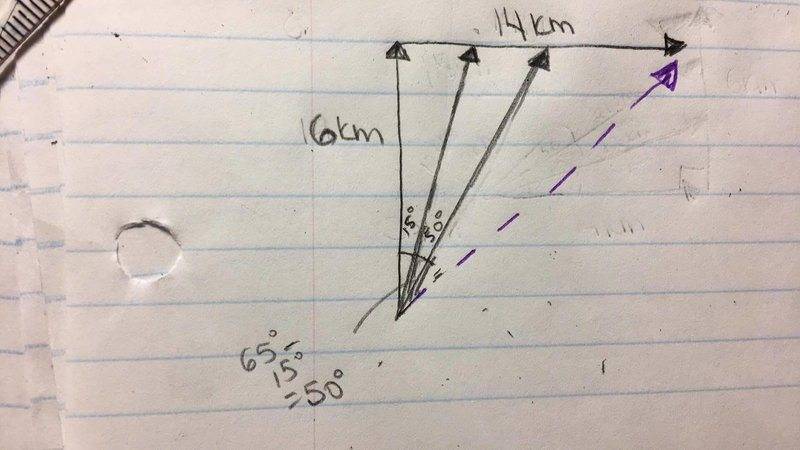 14km
16km
15° 50
65° -
15°
=50°